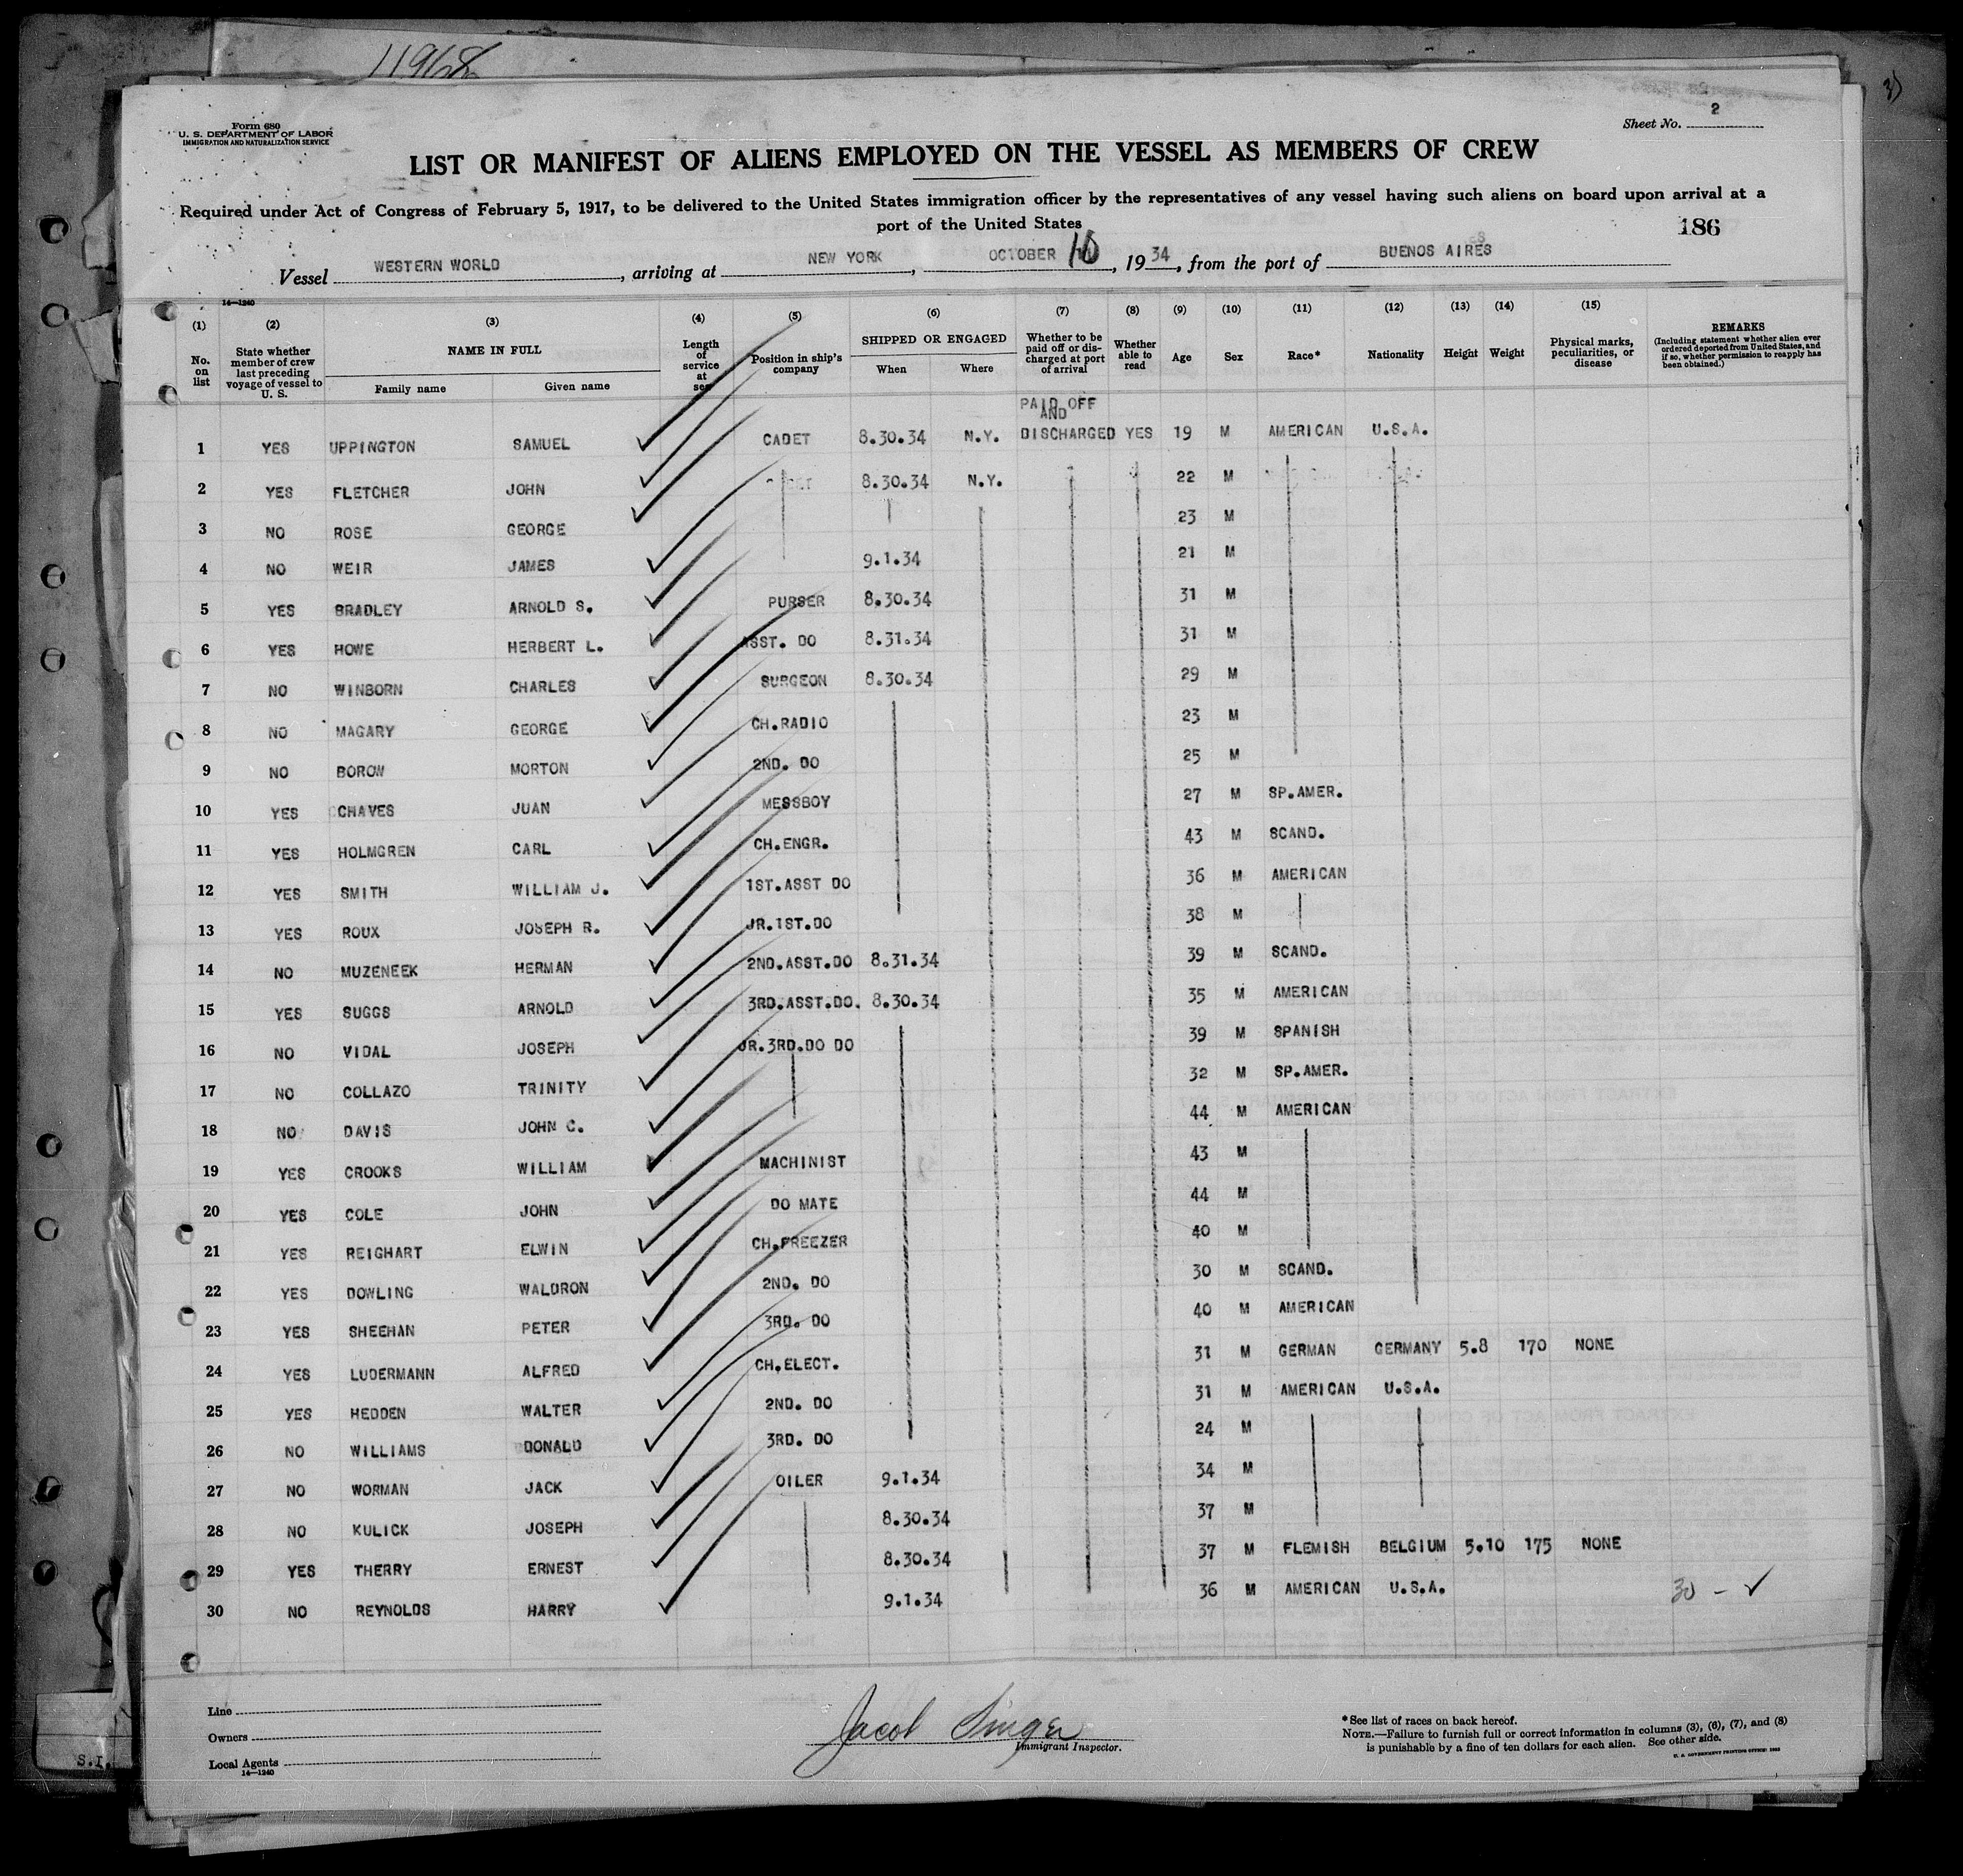 11968
Form 680
U. S. DEPARTMENT OF LABOR
IMMIGRATION AND NATURALIZATION SERVICE
Sheet No. 2
LIST OR MANIFEST OF ALIENS EMPLOYED ON THE VESSEL AS MEMBERS OF CREW
Required under Act of Congress of February 5, 1917, to be delivered to the United States immigration officer by the representatives of any vessel having such aliens on board upon arrival at a
port of the United States
186
Vessel WESTERN WORLD, arriving at NEW YORK, OCTOBER 10, 1934, from the port of BUENOS AIRES
14—1240
(1) (2) (3) (4) (5) (6) (7) (8) (9) (10) (11) (12) (13) (14) (15)
No. on list
State whether member of crew last preceding voyage of vessel to U. S.
NAME IN FULL
Family name Given name
Length of service at sea
Position in ship's company
SHIPPED OR ENGAGED
When Where
Whether to be paid off or discharged at port of arrival
Whether able to read
Age Sex Race* Nationality Height Weight
Physical marks, peculiarities, or disease
REMARKS
(Including statement whether alien ever ordered deported from United States, and if so, whether permission to reapply has been obtained.)
PAID OFF
AND
1 YES UPPINGTON SAMUEL CADET 8.30.34 N.Y. DISCHARGED YES 19 M AMERICAN U.S.A.
2 YES FLETCHER JOHN 8.30.34 N.Y. 22 M
3 NO ROSE GEORGE 23 M
4 NO WEIR JAMES 9.1.34 21 M
5 YES BRADLEY ARNOLD S. PURSER 8.30.34 31 M
6 YES HOWE HERBERT L. ASST. DO 8.31.34 31 M
7 NO WINBORN CHARLES SURGEON 8.30.34 29 M
8 NO MAGARY GEORGE CH.RADIO 23 M
9 NO BOROW MORTON 2ND. DO 25 M
10 YES CHAVES JUAN MESSBOY 27 M SP.AMER.
11 YES HOLMGREN CARL CH.ENGR. 43 M SCAND.
12 YES SMITH WILLIAM J. 1ST.ASST DO 36 M AMERICAN
13 YES ROUX JOSEPH R. JR.1ST.DO 38 M
14 NO MUZENEEK HERMAN 2ND.ASST.DO 8.31.34 39 M SCAND.
15 YES SUGGS ARNOLD 3RD.ASST.DO. 8.30.34 35 M AMERICAN
16 NO VIDAL JOSEPH JR.3RD.DO DO 39 M SPANISH
17 NO COLLAZO TRINITY 32 M SP.AMER.
18 NO DAVIS JOHN C. 44 M AMERICAN
19 YES CROOKS WILLIAM MACHINIST 43 M
20 YES COLE JOHN DO MATE 44 M
21 YES REIGHART ELWIN CH.FREEZER 40 M
22 YES DOWLING WALDRON 2ND. DO 30 M SCAND.
23 YES SHEEHAN PETER 3RD. DO 40 M AMERICAN
24 YES LUDERMANN ALFRED CH.ELECT. 31 M GERMAN GERMANY 5.8 170 NONE
25 YES HEDDEN WALTER 2ND. DO 31 M AMERICAN U.S.A.
26 NO WILLIAMS DONALD 3RD. DO 24 M
27 NO WORMAN JACK OILER 9.1.34 34 M
28 NO KULICK JOSEPH 8.30.34 37 M
29 YES THERRY ERNEST 8.30.34 37 M FLEMISH BELGIUM 5.10 175 NONE
30 NO REYNOLDS HARRY 9.1.34 36 M AMERICAN U.S.A.
30 – ✓
Line
Owners
Local Agents
14—1240
S.I.
Jacob Singer
Immigrant Inspector.
*See list of races on back hereof.
NOTE.—Failure to furnish full or correct information in columns (3), (6), (7), and (8)
is punishable by a fine of ten dollars for each alien. See other side.